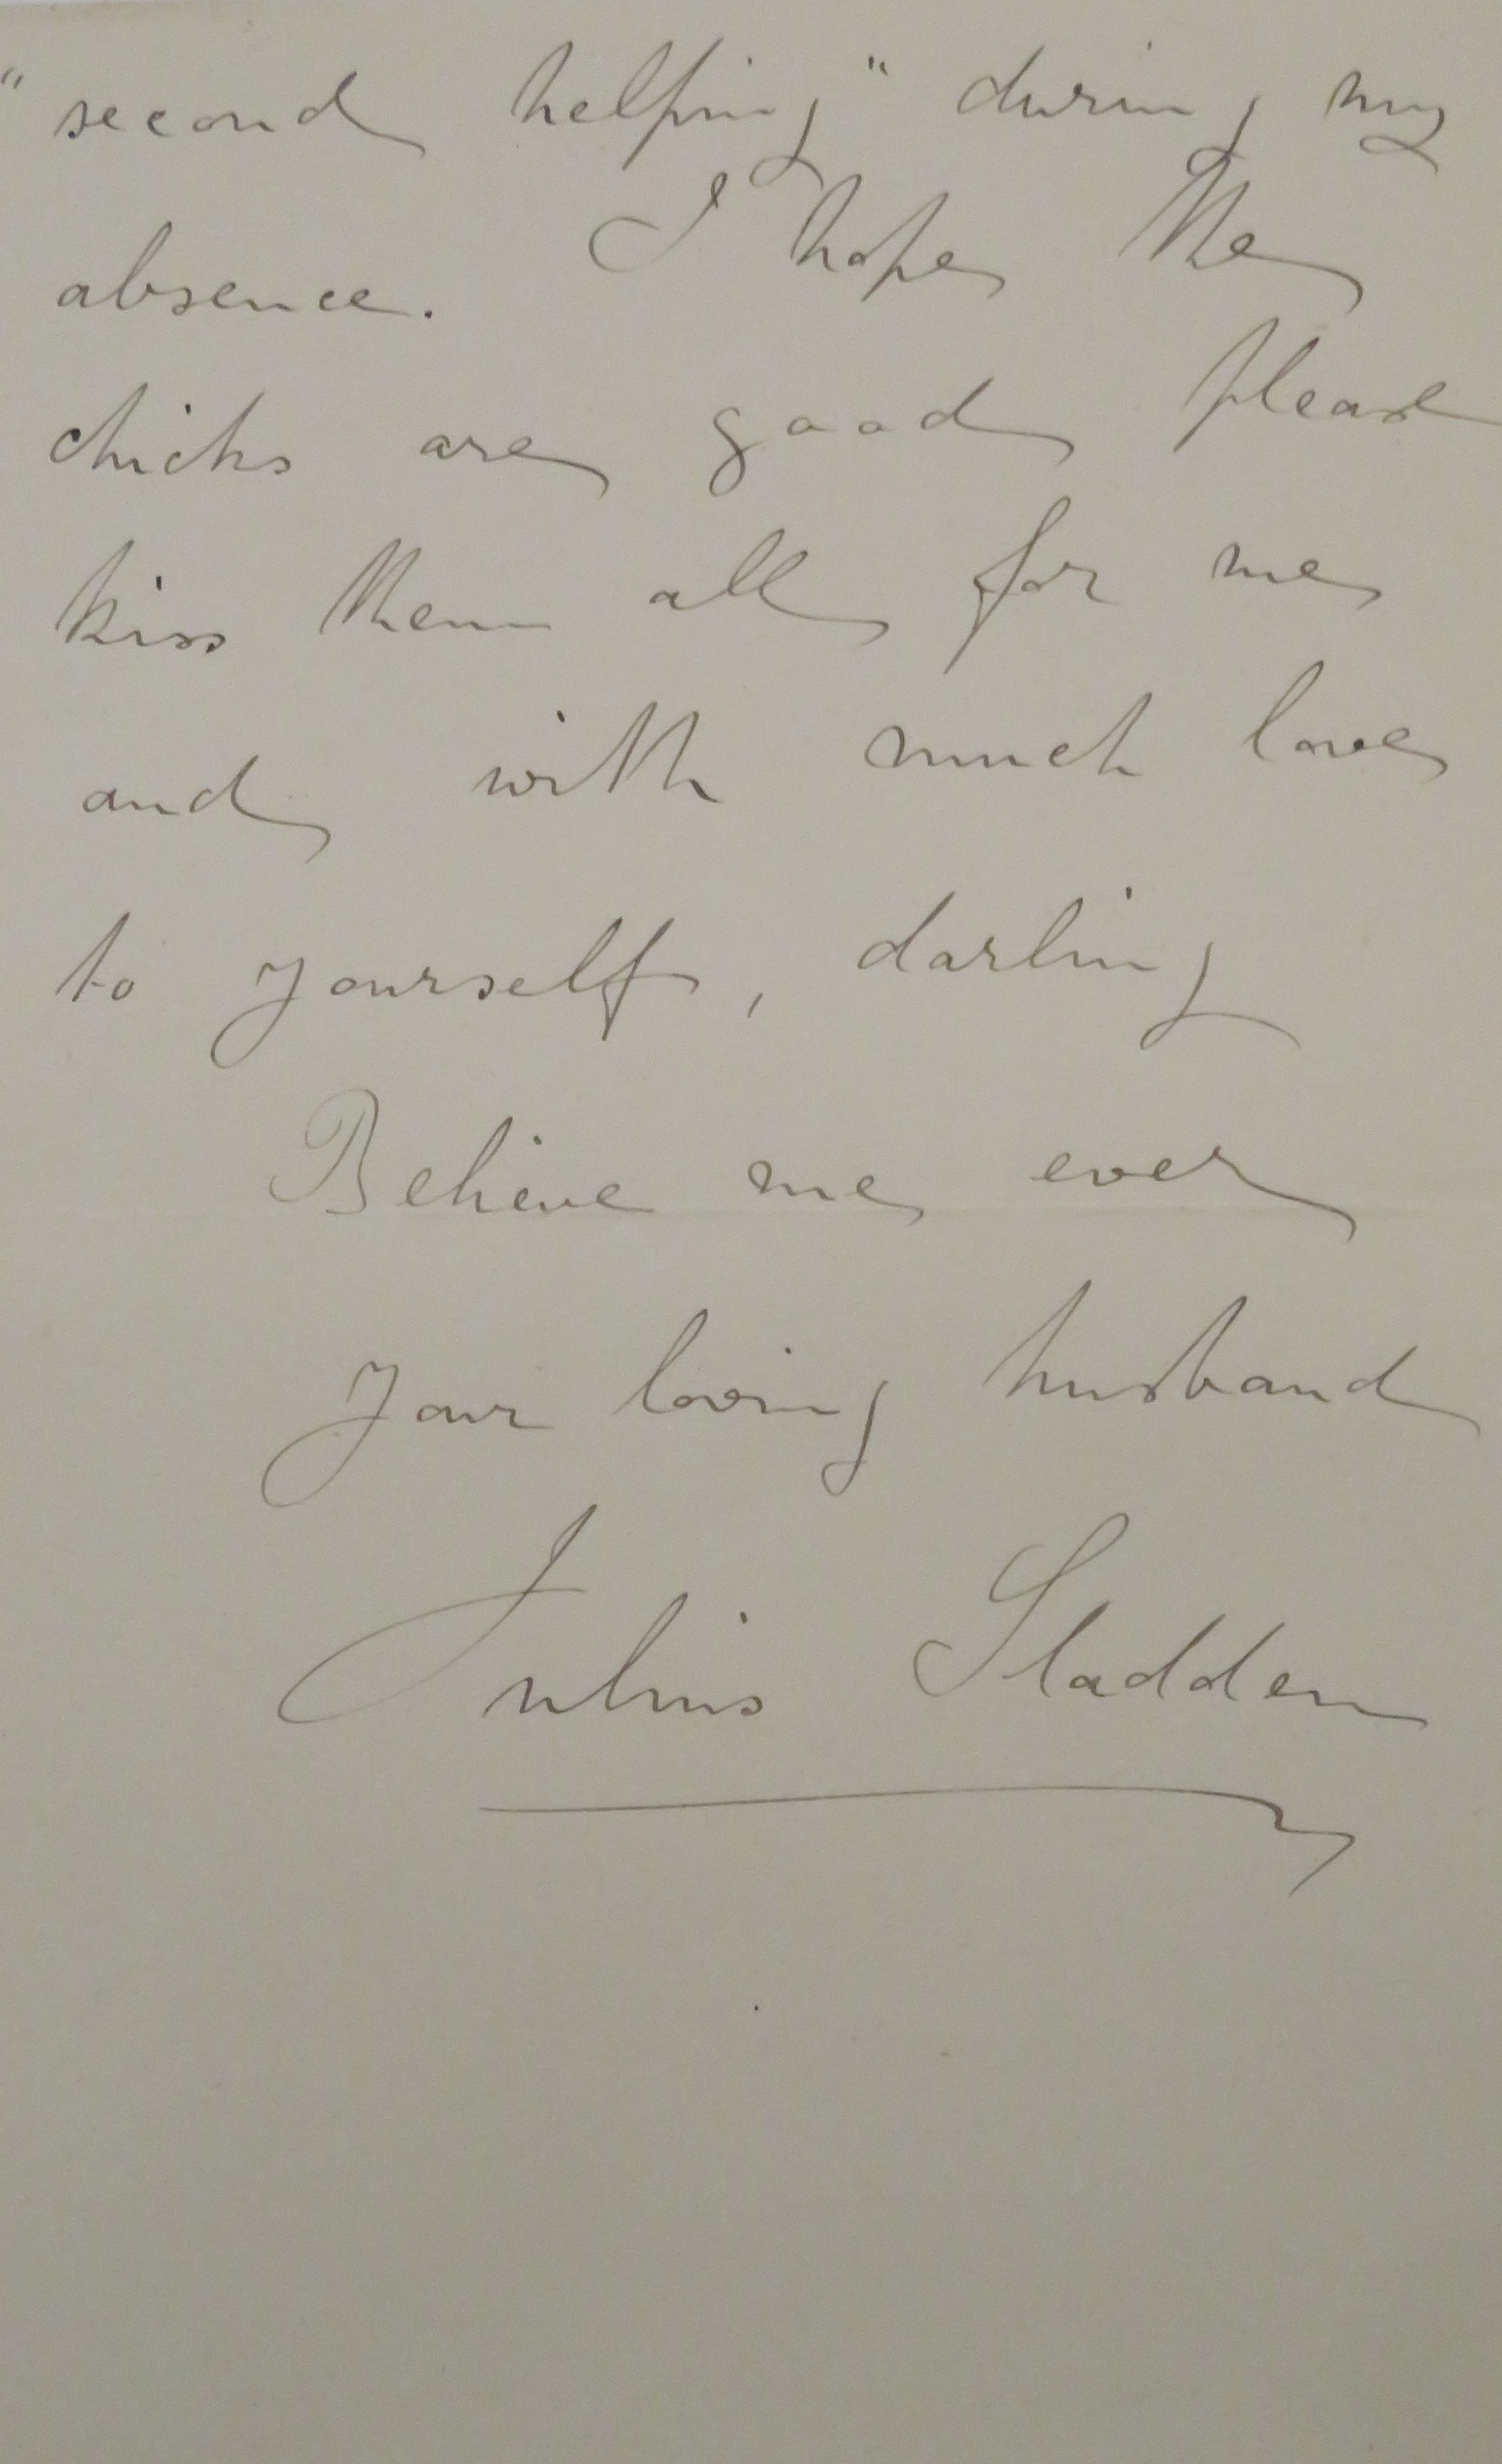 "second helping" during my
absence. I hope the
chicks are good please
kiss them all for me
and with much love
to yourself, darling
Believe me ever
Your loving husband
Julius Sladden